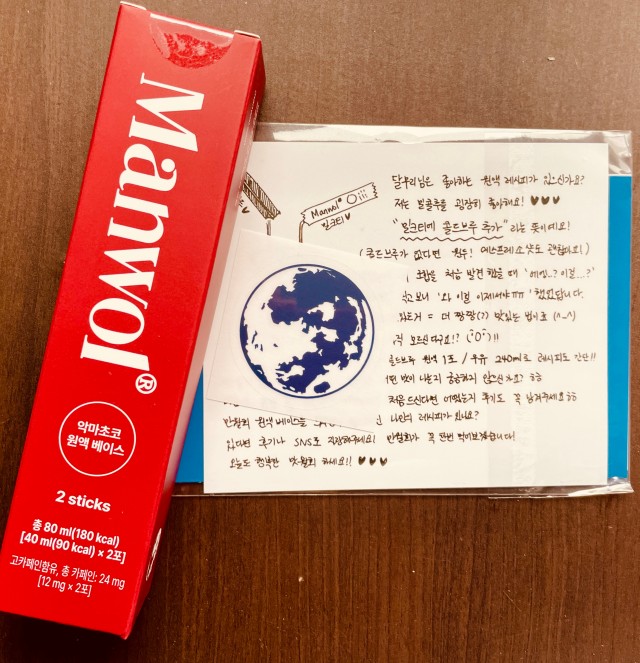 Manwol®
악마초코
원액 베이스
2 sticks
총 80 ml(180 kcal)
[40 ml(90 kcal) × 2포]
고카페인함유, 총 카페인: 24 mg
[12 mg × 2포]
Manwol®
밀크티♥
달우리님은 좋아하는 원액 레시피가 있으신가요?
저는 보콜추를 굉장히 좋아해요! ♥♥♥
"밀크티에 콜드브루 추가"라는 뜻이에요!
(콜드브루가 없다면 에스프레소 샷도 괜찮아요!)
처음 발견했을 때 '에엥..? 이걸...?'
보니 '와 이걸 이제서야ㅠㅠ' 했었답니다.
= 더 짱짱(??) 맛있는 법이호 (^~^)
콜드브루 원액 1포 / 우유 240ml로 레시피도 간단!!
맛이 나는지 궁금하지 않으신가요? ㅎㅎ
처음 드신다면 어땠는지 후기도 꼭 남겨주세요 ㅎㅎ
만월회 원액 베이스를 나만의 레시피가 있나요?
있다면 후기나 SNS로 자랑해주세요! 만월회가 꼭 한번 먹어보겠습니다!
오늘도 행복한 만월회 하세요!! ♥♥♥